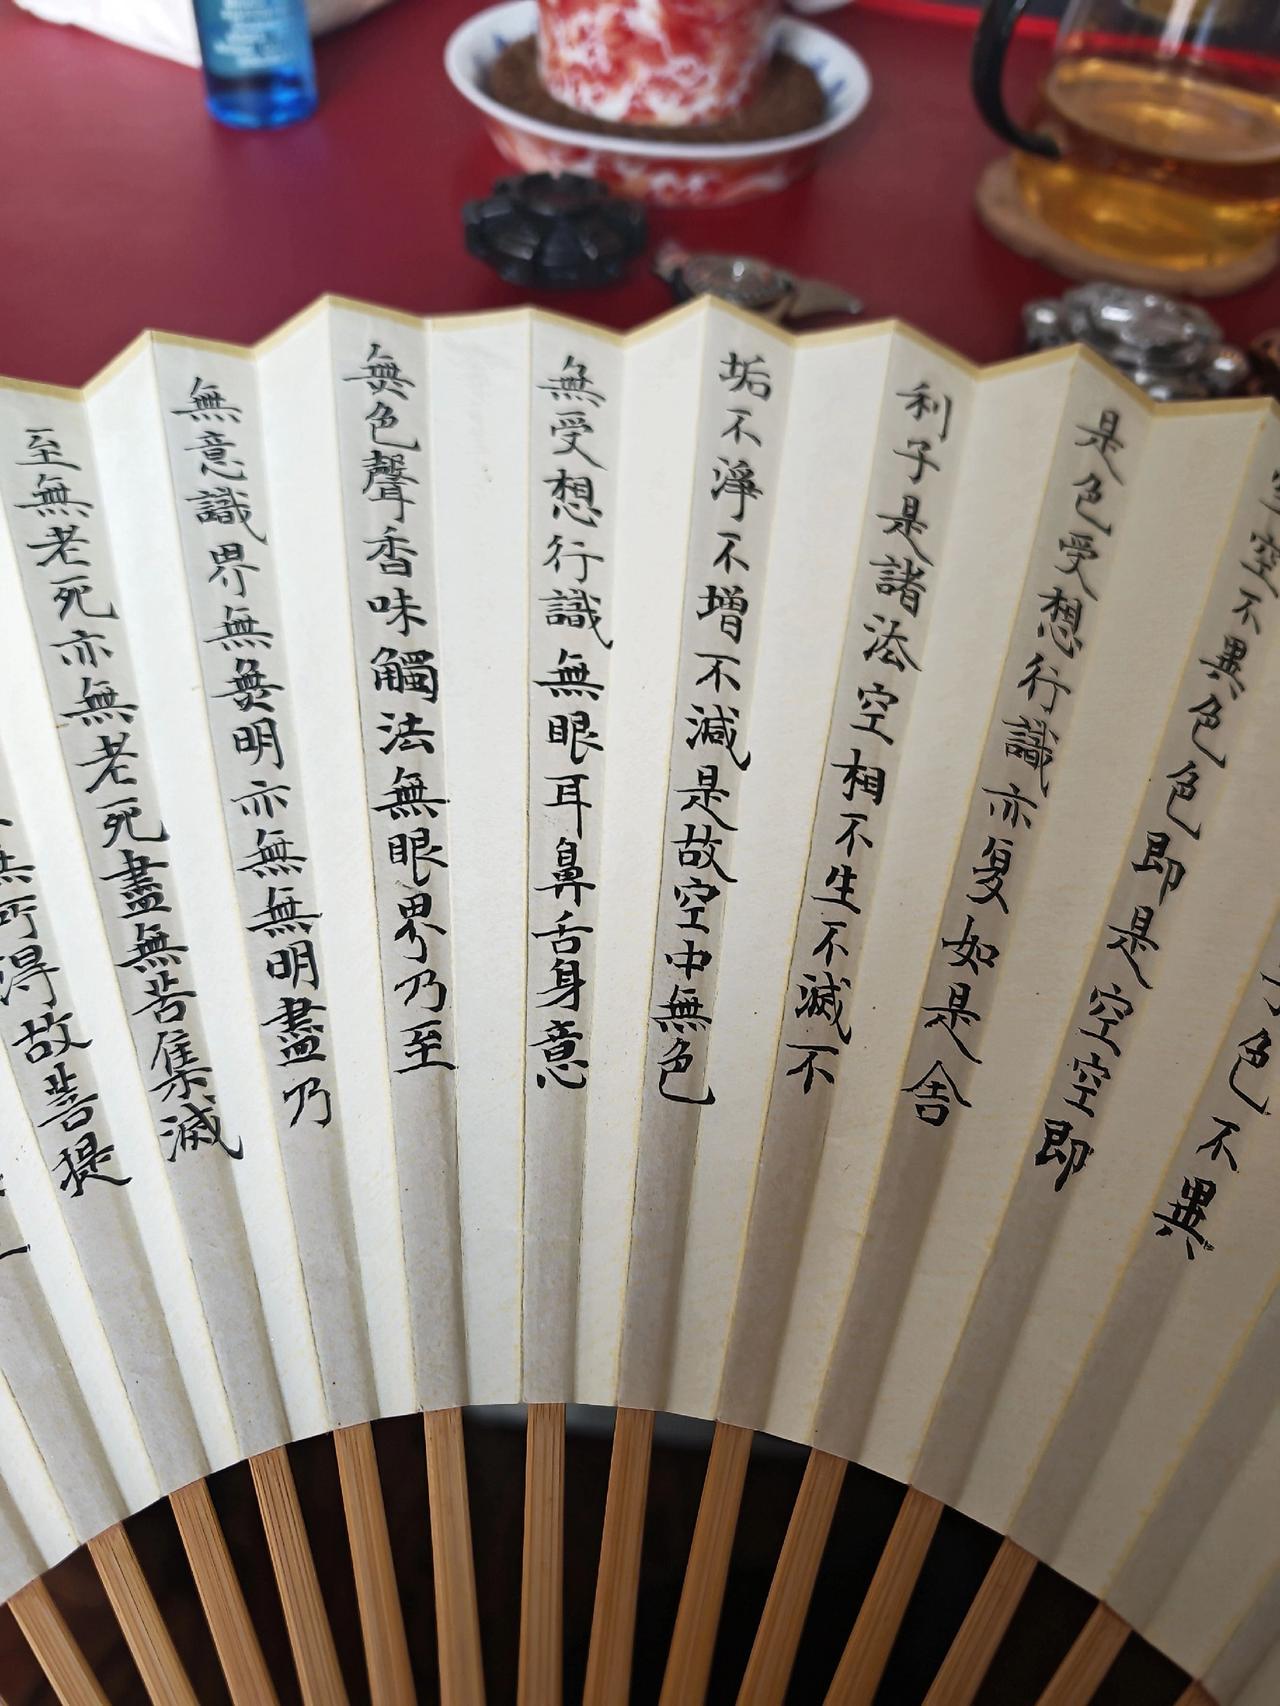 色不異
空不異色色即是空空即
是色受想行識亦复如是舍
利子是諸法空相不生不滅不
垢不淨不增不減是故空中無色
無受想行識無眼耳鼻舌身意
無色聲香味觸法無眼界乃至
無意識界無無明亦無無明盡乃
至無老死亦無老死盡無苦集滅
得故菩提